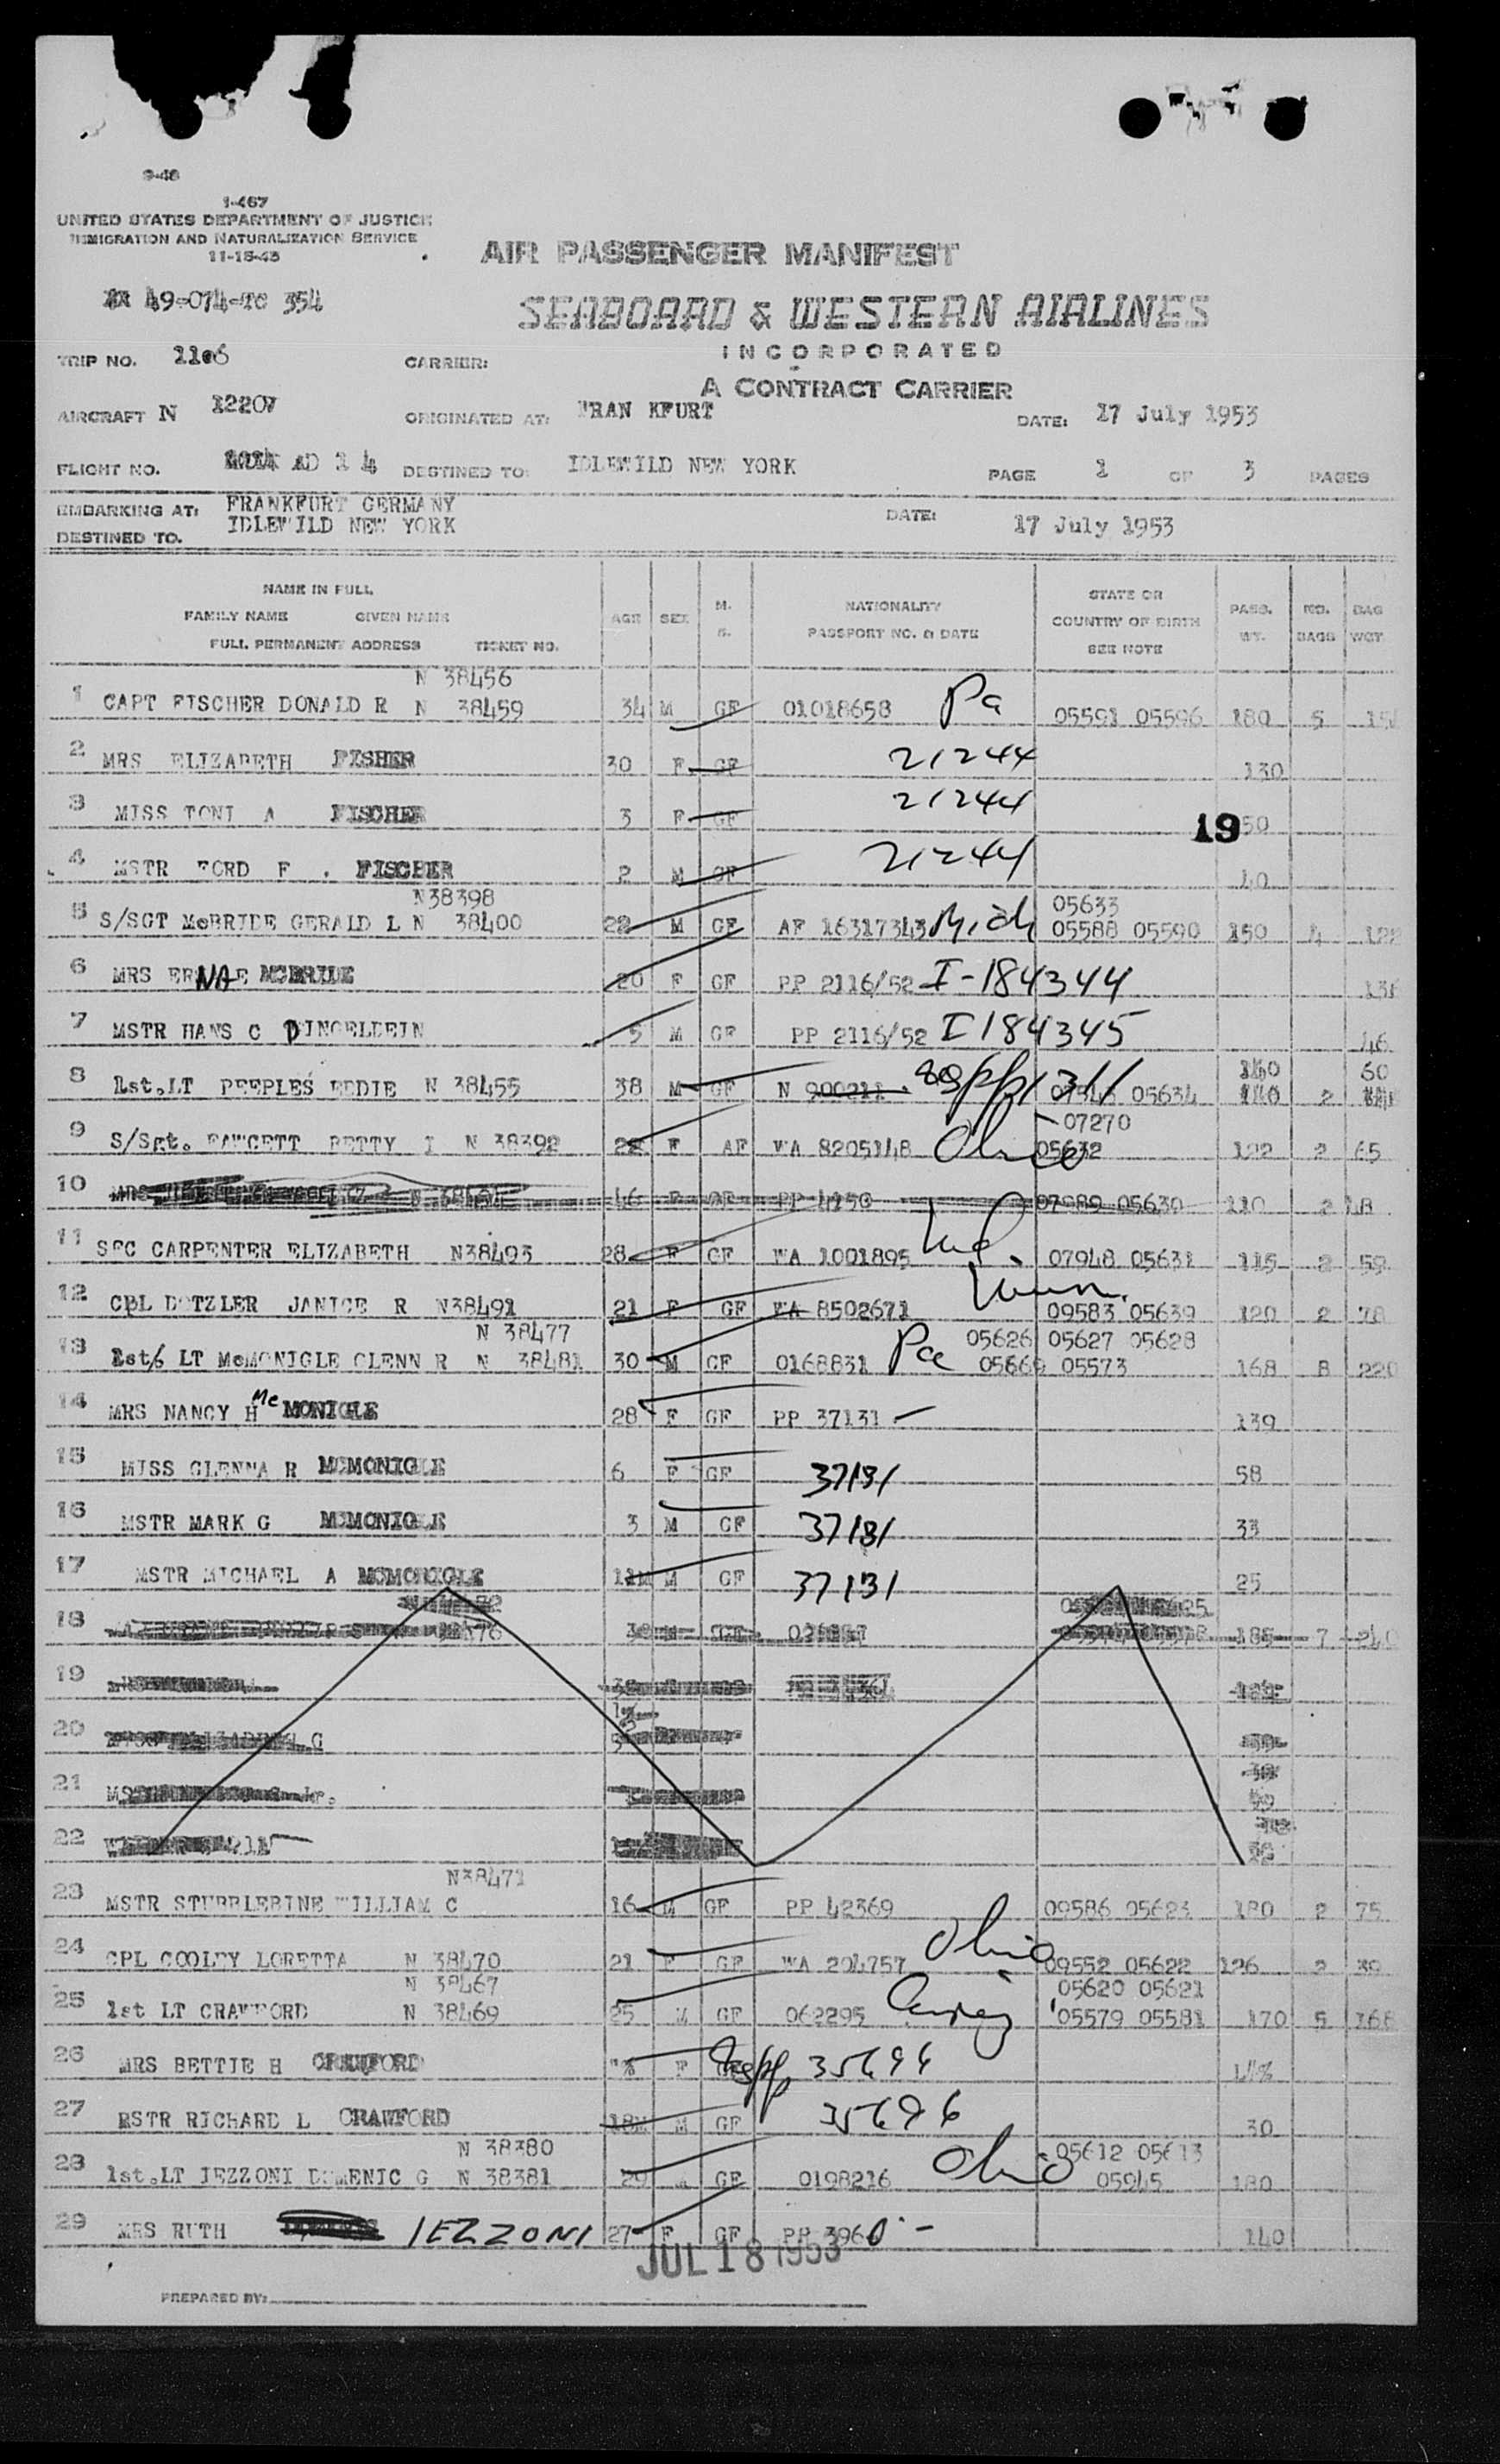 9-48
1-467
UNITED STATES DEPARTMENT OF JUSTICE
IMMIGRATION AND NATURALIZATION SERVICE
11-15-45
AIR PASSENGER MANIFEST
49-074-TC 354
SEABOARD & WESTERN AIRLINES
INCORPORATED
TRIP NO. 1106 CARRIER:
A CONTRACT CARRIER
AIRCRAFT N 1220V ORIGINATED AT: FRAN KFURT DATE: 17 July 1953
FLIGHT NO. AD 1 4 DESTINED TO: IDLEWILD NEW YORK PAGE 1 OF 3 PAGES
EMBARKING AT: FRANKFURT GERMANY DATE: 17 July 1953
DESTINED TO. IDLEWILD NEW YORK
NAME IN FULL
FAMILY NAME GIVEN NAME
FULL PERMANENT ADDRESS TICKET NO.
AGE SEX M. S. NATIONALITY PASSPORT NO. & DATE STATE OR COUNTRY OF BIRTH SEE NOTE PASS. WT. NO. BAGS BAG WGT.
N 38456
1 CAPT FISCHER DONALD R N 38459 34 M GF 01018658 Pa 05591 05596 180 5
2 MRS ELIZABETH FISHER 30 F GF 21244 130
3 MISS TONI A FISCHER 3 F GF 21244 19 50
4 MSTR FORD F . FISCHER 2 M GF 21244 40
N38398 05633
5 S/SGT McBRIDE GERALD L N 38400 22 M GF AF 16317343 Mich 05588 05590 150 4
6 MRS ERNA E MCBRIDE 20 F GF PP 2116/52 I-184344
7 MSTR HANS C DINGELDEIN 5 M GF PP 2116/52 I 184345 46
140 60
8 1st.LT PEEPLES EDDIE N 38455 38 M GF N 900211 05634 2
07270
9 S/Sgt. FAWCETT BETTY I N 38392 F AF WA 8205148 Ohio 05632 122 2 65
10 46 F GF PP 4250 07989 05630 110 2 48
11 SFC CARPENTER ELIZABETH N38493 28 F GF WA 1001895 07948 05631 115 2 59
12 CPL DOTZLER JANICE R N38491 21 F GF WA 8502671 09583 05639 120 2 78
N 38477 05626 05627 05628
13 1st LT McMONIGLE GLENN R N 38481 30 M GF 0168831 Pa 05669 05573 168 8 220
14 MRS NANCY H Mc MONIGLE 28 F GF PP 37131 139
15 MISS GLENNA R MCMONIGLE 6 F GF 37131 58
16 MSTR MARK G MCMONIGLE 3 M GF 37131 33
17 MSTR MICHAEL A MCMONIGLE 11M M GF 37131 25
18 185 7 240
19
20 G
21
22
N38471
23 MSTR STUBBLEBINE WILLIAM C 16 M GF PP 42369 09586 05623 180 2 75
24 CPL COOLEY LORETTA N 38470 21 F GF WA 204757 Ohio 09552 05622 126 2 39
N 38467 05620 05621
25 1st LT CRAWFORD N 38469 25 M GF 062295 05579 05581 170 5 166
26 MRS BETTIE H CRAWFORD F GF 35696
27 MSTR RICHARD L CRAWFORD 18M M GF 35696 30
N 38380 05612 05613
28 1st.LT IEZZONI DOMENIC G N 38381 29 M GF 0198216 Ohio 05945 180
29 MRS RUTH IEZZONI 27 F GF PP 3960 140
JUL 18 1953
PREPARED BY: